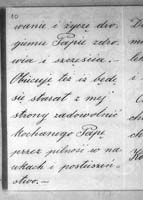 10
wanie i życzę dro-
giemu Papie zdro-
wia i szczęścia.
Obiecuję też iż będę
się starał z mej
strony zadowolnić
Kochanego Papę
przez pilność w na-
ukach i posłuszeń-
stwo.